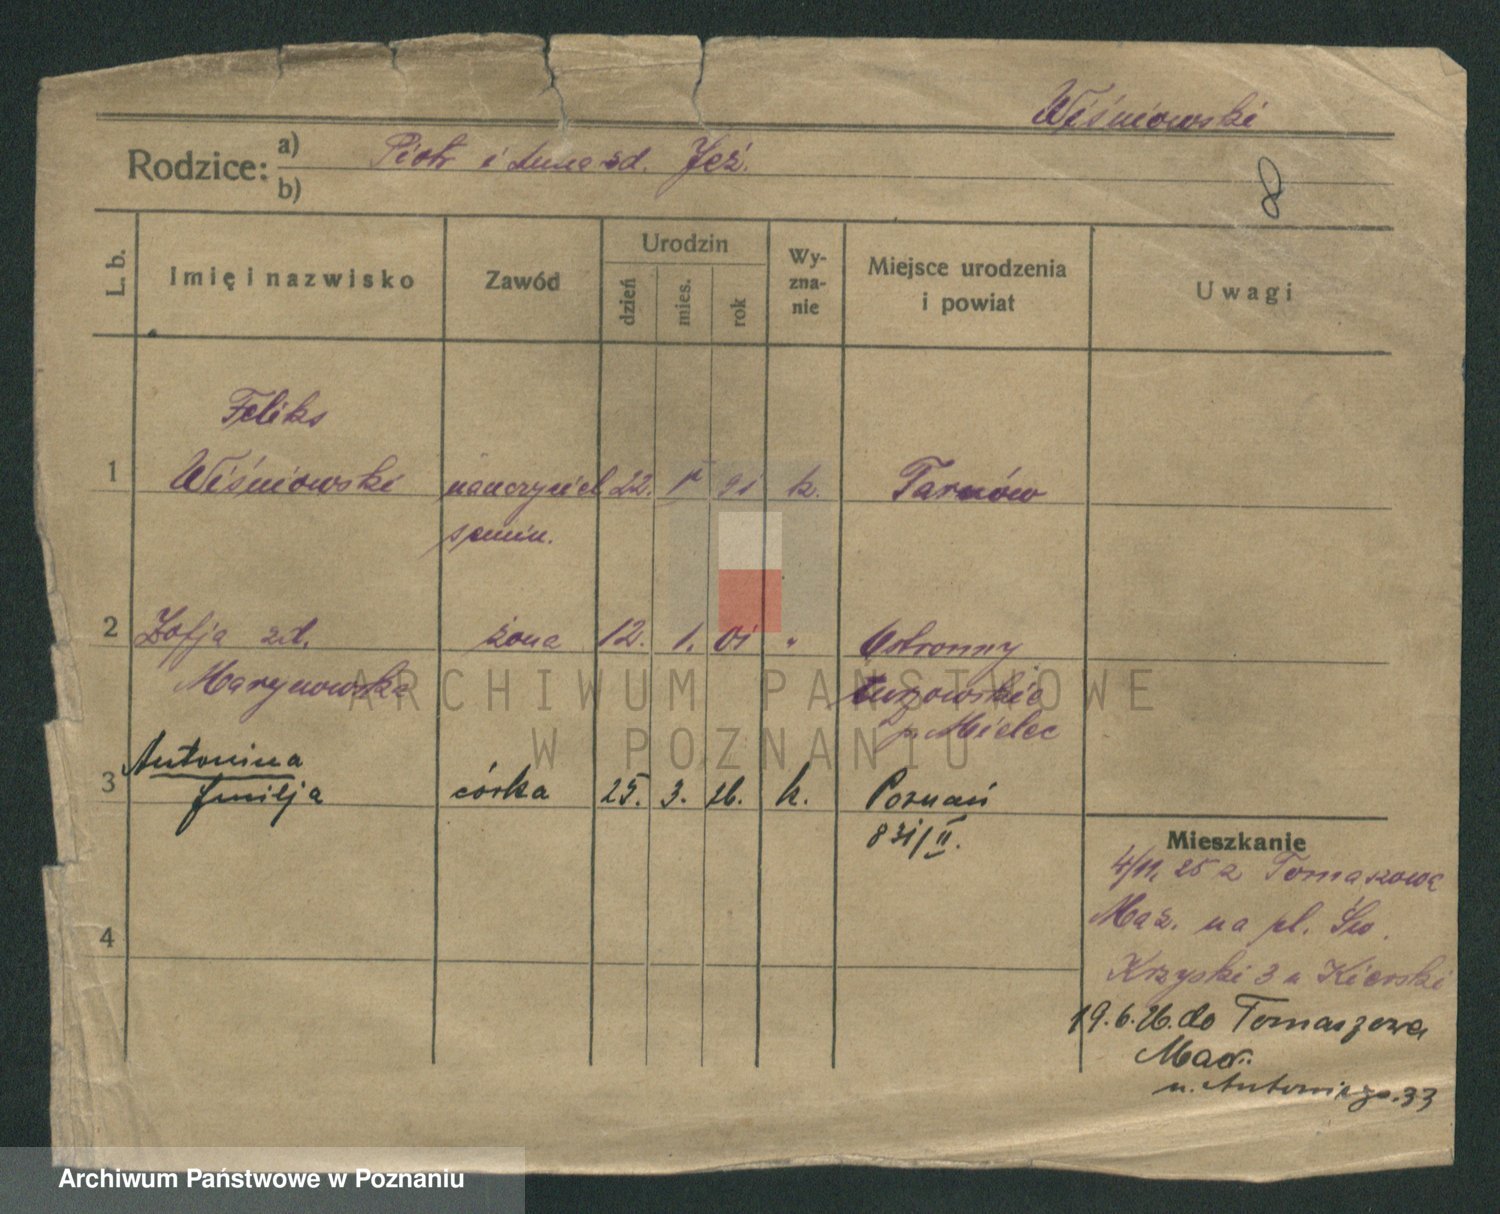 Wiśniowski
Rodzice: a) Piotr i Anna zd. Jeż.
b)
8
L. b.
Imię i nazwisko
Zawód
Urodzin
dzień
mies.
rok
Wy-
zna-
nie
Miejsce urodzenia
i powiat
Uwagi
Feliks
1 Wiśniowski nauczyciel 22. 91 k. Tarnów
semin.
2 Zofja zd. żona 12. 1. 01 " Ostronny
Marynowska
tuszowskie
p. Mielec
Antonina
3 Emilja córka 25. 3. 26. k. Poznań
831/II.
4
Mieszkanie
4/11. 25 z Tomaszowa
Maz. na pl. Św.
Krzyski 3 u Kierski
19.6.26. do Tomaszowa
Maz.
u. Antoniego. 33
ARCHIWUM PAŃSTWOWE
W POZNANIU
Archiwum Państwowe w Poznaniu